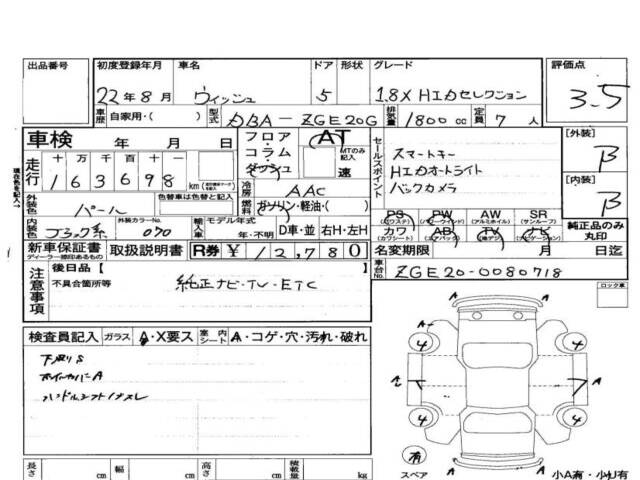 出品番号 初度登録年月 車名 ドア 形状 グレード 評価点
22年8月 ウィッシュ 5 1.8X HIDセレクション 3.5
車歴 自家用・( ) 型式 DBA-ZGE20G 排気量 1800cc 定員 7人
車検 年 月 日 フロア・コラム・ダッシュ AT MTのみ記入 速
現在色を記入→
走行 十万千百十一
163698 km
冷房 AAC
外装色 パール 色替車は色替と記入 燃料 ガソリン・軽油・( )
内装色 ブラック系 外装カラーNo. 070 輸入車 モデル年式 年・不明 D車・並 右H・左H
セールスポイント
スマートキー
HIDオートライト
バックカメラ
[外装] B
[内装] B
PS (パワステ) PW (パワーウインド) AW (アルミホイル) SR (サンルーフ)
カワ (カワシート) AB (エアバック) TV (純正デジ) ナビ (ナビゲーション)
純正品のみ丸印
新車保証書 取扱説明書 R券 ¥12,780 名変期限 月 日迄
ディーラー捺印あるもの
車台No. ZGE20-0080718
注意事項 後日品【 】
不具合箇所等 純正ナビ・TV・ETC
ロック車
検査員記入 ガラス A・X要ス 室内シート A・コゲ・穴・汚れ・破れ
下廻りS
ホイールカバーA
A A
4 4
A A
4 4
有
スペア
A
長さ cm 幅 cm 高さ cm 積載量 kg
小A有・小U有